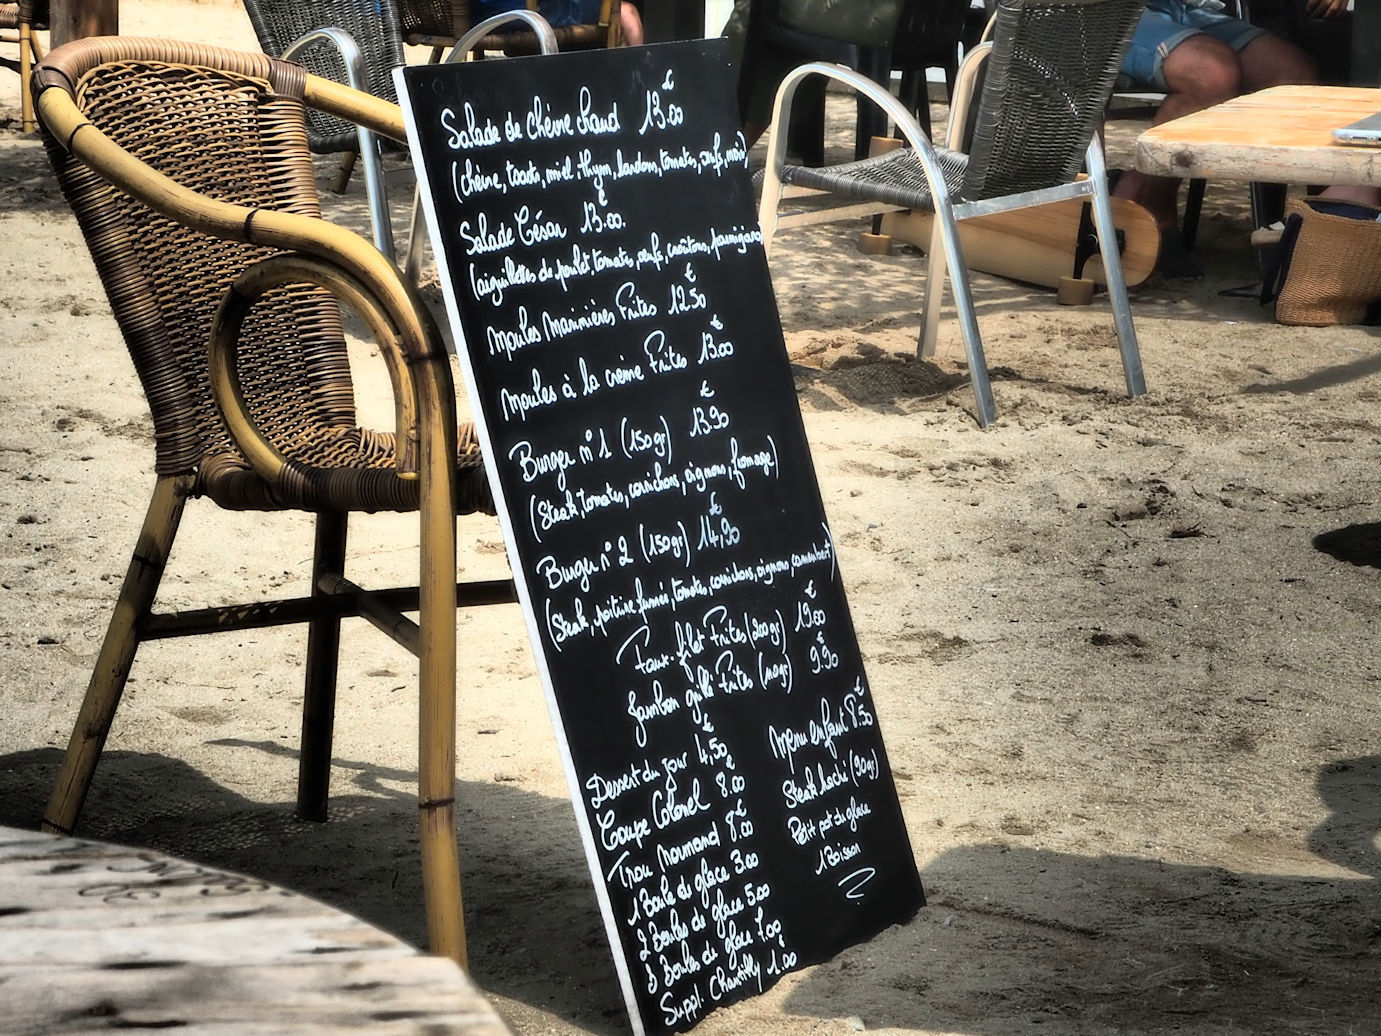 Salade de chèvre chaud 13.00€
(chèvre, toasts, miel, thym, lardons, tomates, œufs, noix)
Salade César 13.00€
(aiguillettes de poulet, tomates, œufs, croûtons, parmigiano)
Moules Marinières Frites 12.50€
Moules à la crème Frites 13.00€
Burger n°1 (150gr) 13.90€
(Steak, tomates, cornichons, oignons, fromage)
Burger n°2 (150gr) 14,90€
(Steak, poitrine fumée, tomates, cornichons, oignons, camembert)
Faux-filet Frites (200gr) 19.00€
Jambon grillé Frites (110gr) 9.90€
Dessert du jour 4,50€
Coupe Colonel 8.00€
Trou Normand 8.00€
1 Boule de glace 3.00
2 Boules de glace 5.00
3 Boules de glace 7.00
Suppl. Chantilly 1.00€
Menu enfant 8.50€
Steak haché (90gr)
Petit pot du glace
1 Boisson